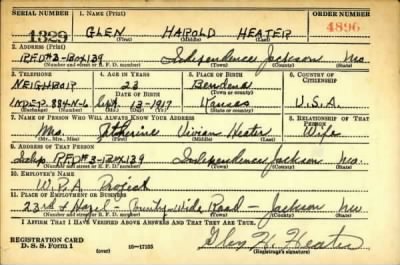 SERIAL NUMBER 1. NAME (Print) ORDER NUMBER
1329 GLEN HAROLD HEATER 4896
(First) (Middle) (Last)
2. ADDRESS (Print)
R.F.D#3-Box139 Independence Jackson Mo
(Number and street or R. F. D. number) (Town) (County) (State)
3. TELEPHONE 4. AGE IN YEARS 5. PLACE OF BIRTH 6. COUNTRY OF CITIZENSHIP
NEIGHBOR 23 Bendena
DATE OF BIRTH
INDEP. 884-N-2 13-1917 Kansas U.S.A.
7. NAME OF PERSON WHO WILL ALWAYS KNOW YOUR ADDRESS 8. RELATIONSHIP OF THAT PERSON
Mrs. Vivian Heater Wife
(Mr., Mrs., Miss) (First) (Middle) (Last)
9. ADDRESS OF THAT PERSON
RFD#3-Box139 Independence Jackson Mo.
(Number and street or R. F. D. number) (Town) (County) (State)
10. EMPLOYER'S NAME
W.P.A. Project
11. PLACE OF EMPLOYMENT OR BUSINESS
23rd & Hazel - County-Wide Road - Jackson Mo
(Number and street or R. F. D. number) (Town) (County) (State)
I AFFIRM THAT I HAVE VERIFIED ABOVE ANSWERS AND THAT THEY ARE TRUE.
REGISTRATION CARD
D. S. S. Form 1 (over) 16-17105 Glen H. Heater
(Registrant's signature)